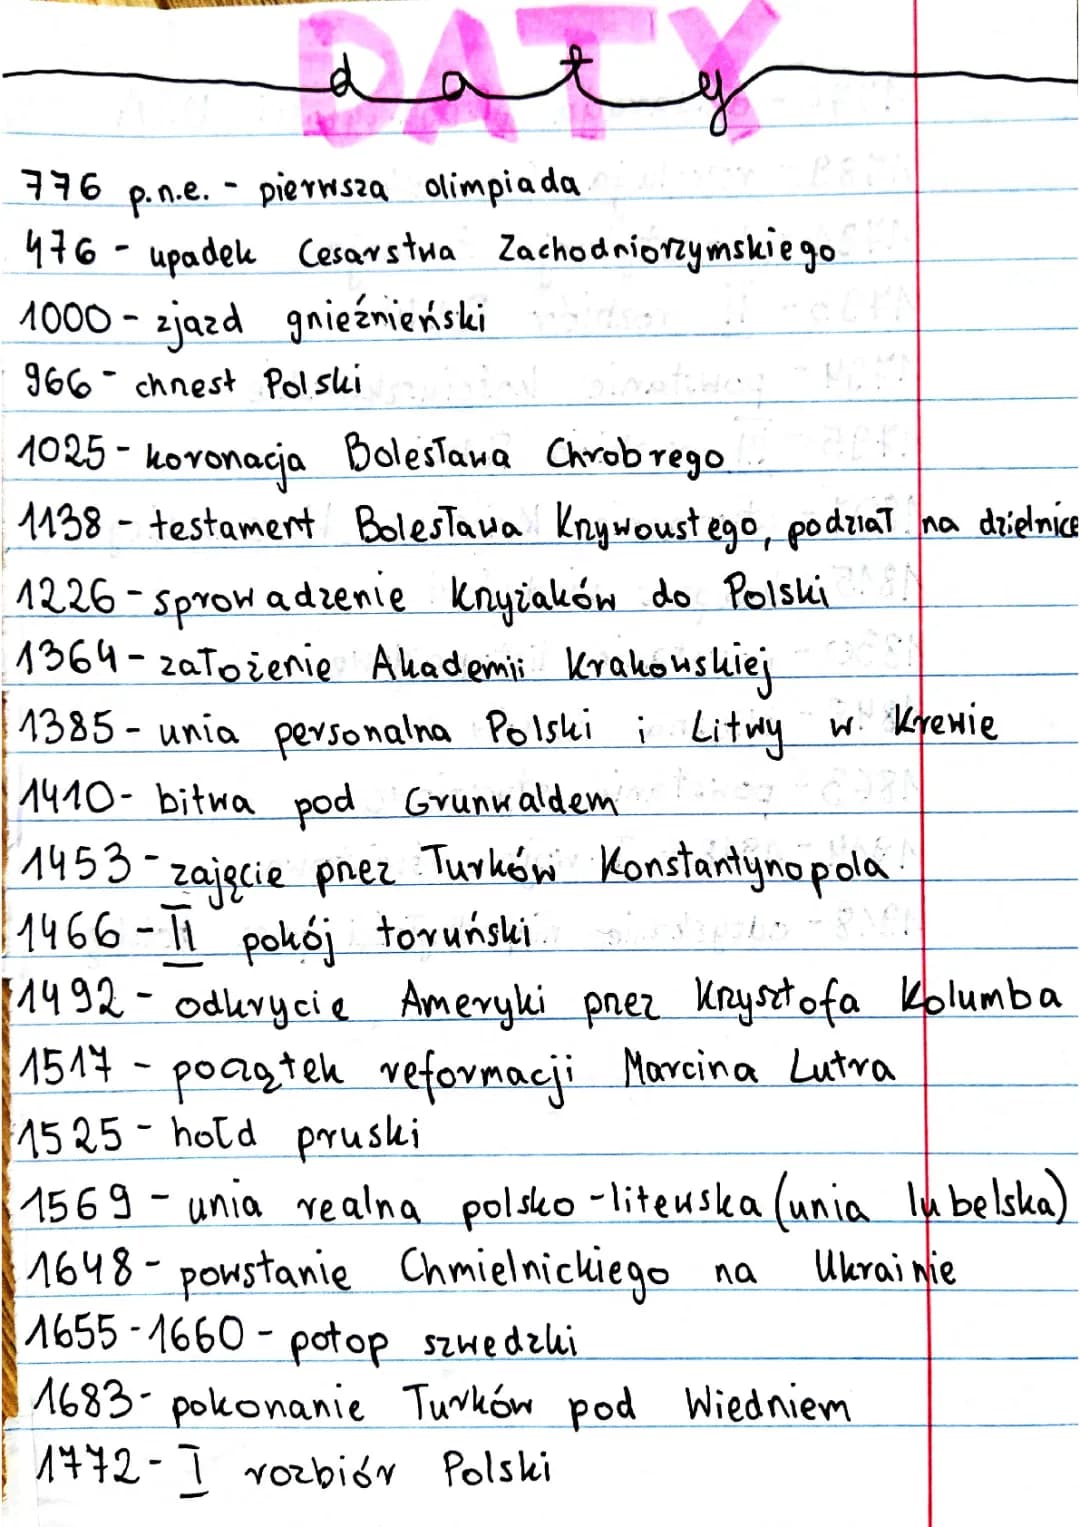 DATY
daty
776 p.n.e. - pierwsza olimpiada
476 - upadek Cesarstwa Zachodniorzymskiego
1000 - zjazd gnieźnieński
966 - chrzest Polski
1025 - koronacja Bolesława Chrobrego
1138 - testament Bolesława Krzywoustego, podział na dzielnice
1226 - sprowadzenie Krzyżaków do Polski
1364 - założenie Akademii Krakowskiej
1385 - unia personalna Polski i Litwy w Krewie
1410 - bitwa pod Grunwaldem
1453 - zajęcie przez Turków Konstantynopola
1466 - II pokój toruński
1492 - odkrycie Ameryki przez Krzysztofa Kolumba
1517 - początek reformacji Marcina Lutra
1525 - hołd pruski
1569 - unia realna polsko-litewska (unia lubelska)
1648 - powstanie Chmielnickiego na Ukrainie
1655-1660 - potop szwedzki
1683 - pokonanie Turków pod Wiedniem
1772 - I rozbiór Polski